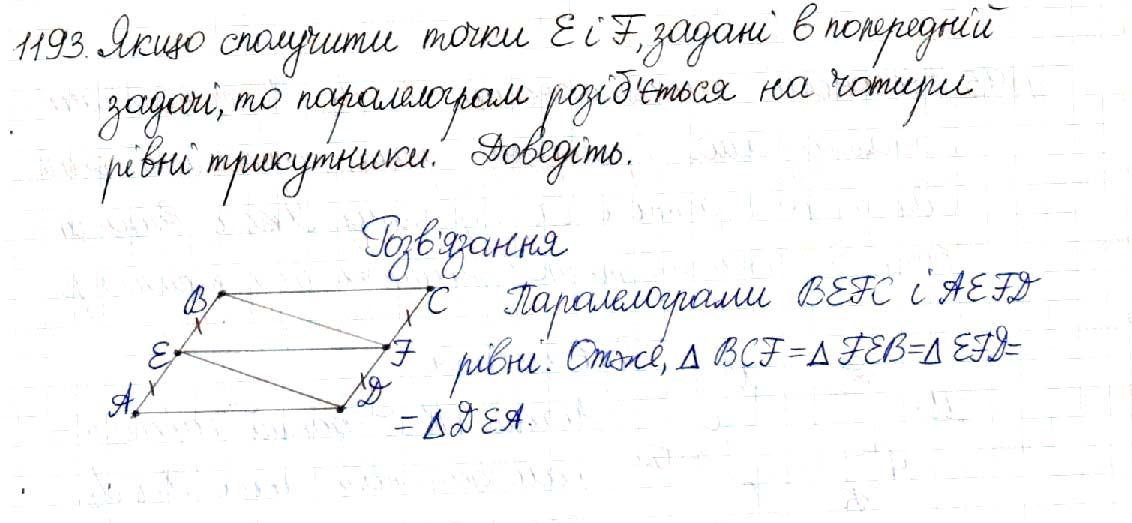 1193. Якщо сполучити точки E і F, задані в попередній
задачі, то паралелограм розіб'ється на чотири
рівні трикутники. Доведіть.
Розв'язання
B
C
E
F
A
D
Паралелограми BEFC і AEFD
рівні. Отже, △ BCF = △ FEB = △ EFD =
= △ DEA.